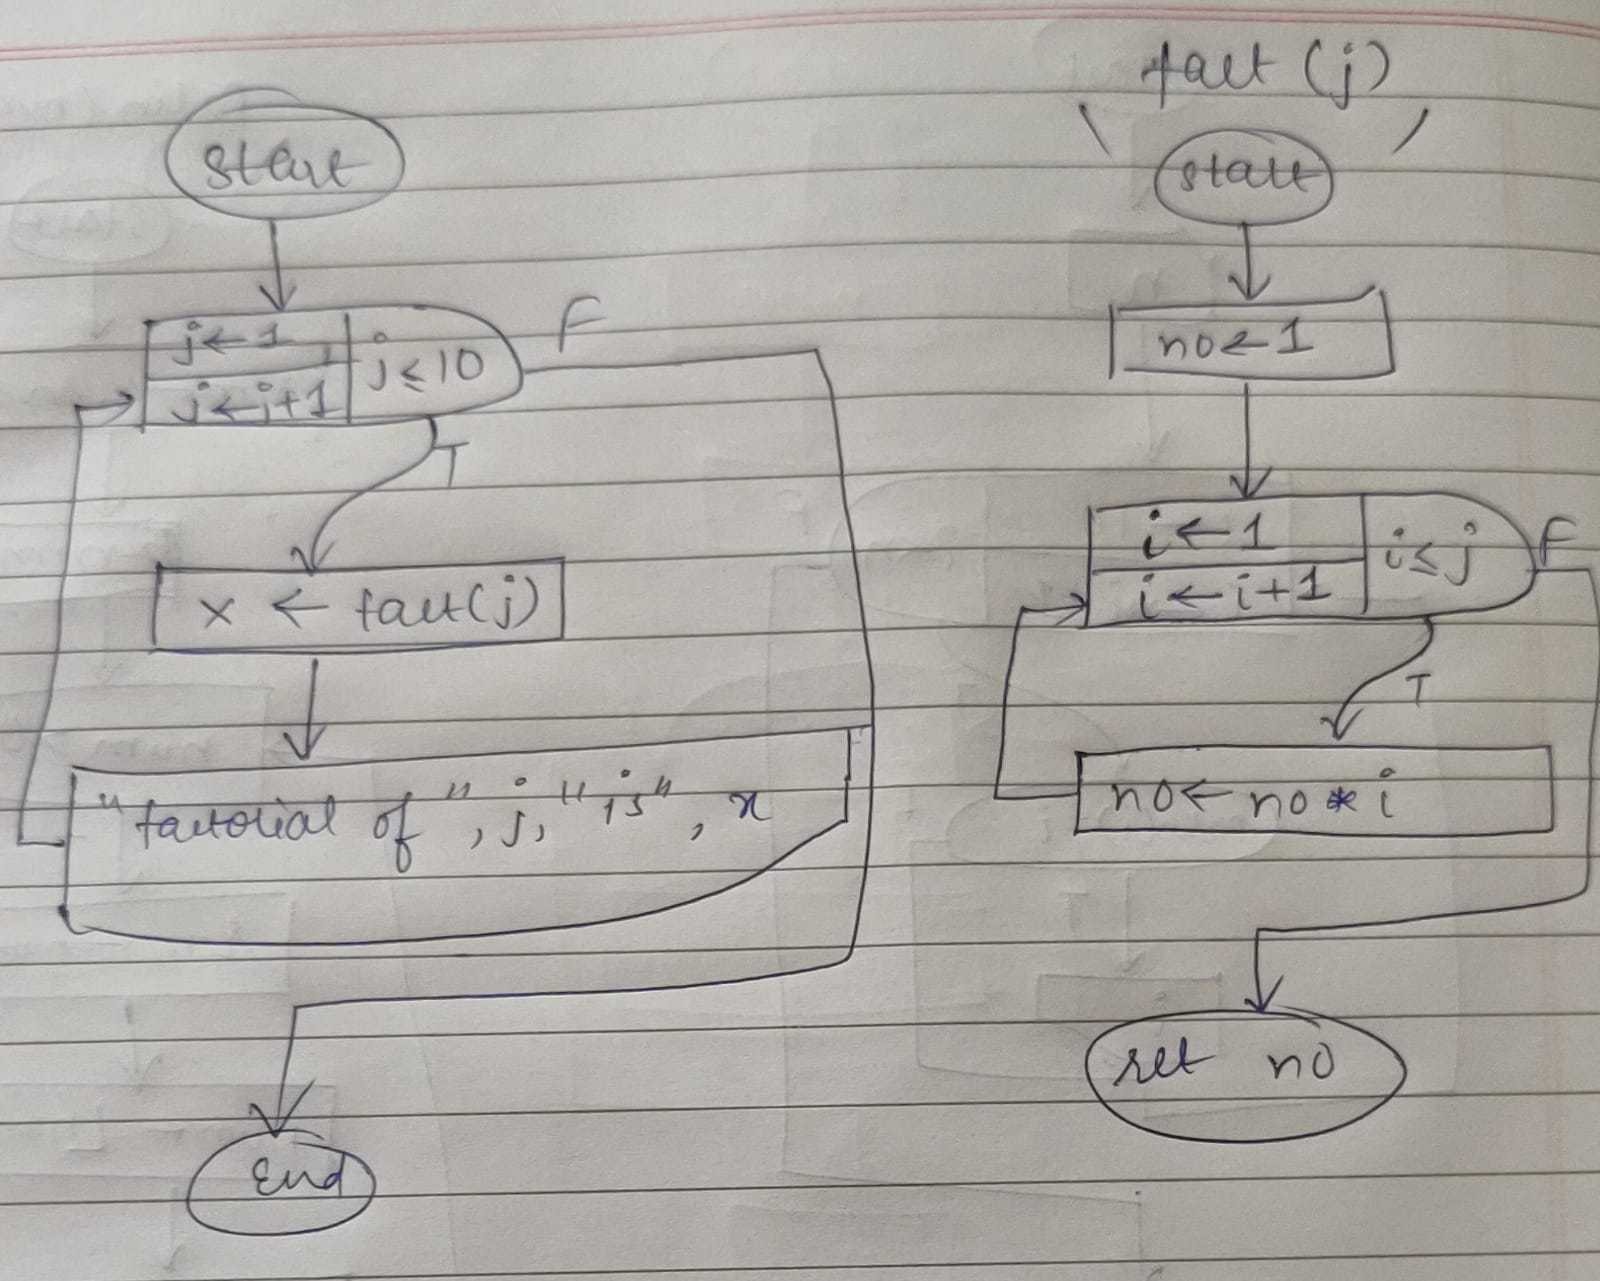 start
j ← 1
j ← j+1
j ≤ 10
F
T
x ← fact(j)
"factorial of", j, "is", x
End
fact (j)
start
no ← 1
i ← 1
i ← i+1
i ≤ j
F
T
no ← no * i
ret no